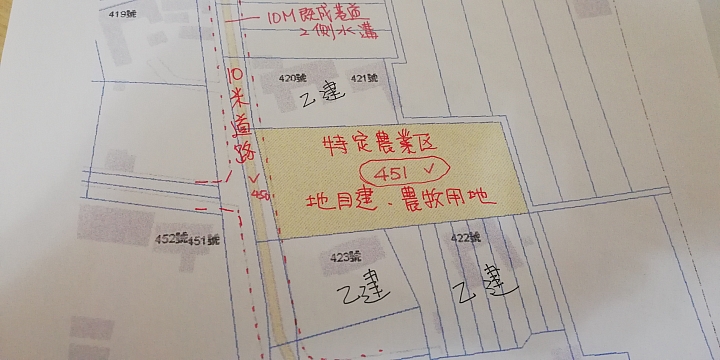 419號
10M既成巷道
2側水溝
10米道路
420號
421號
乙建
特定農業区
451 ✓
地目建、農牧用地
✓
450
452號
451號
423號
422號
乙建
乙建